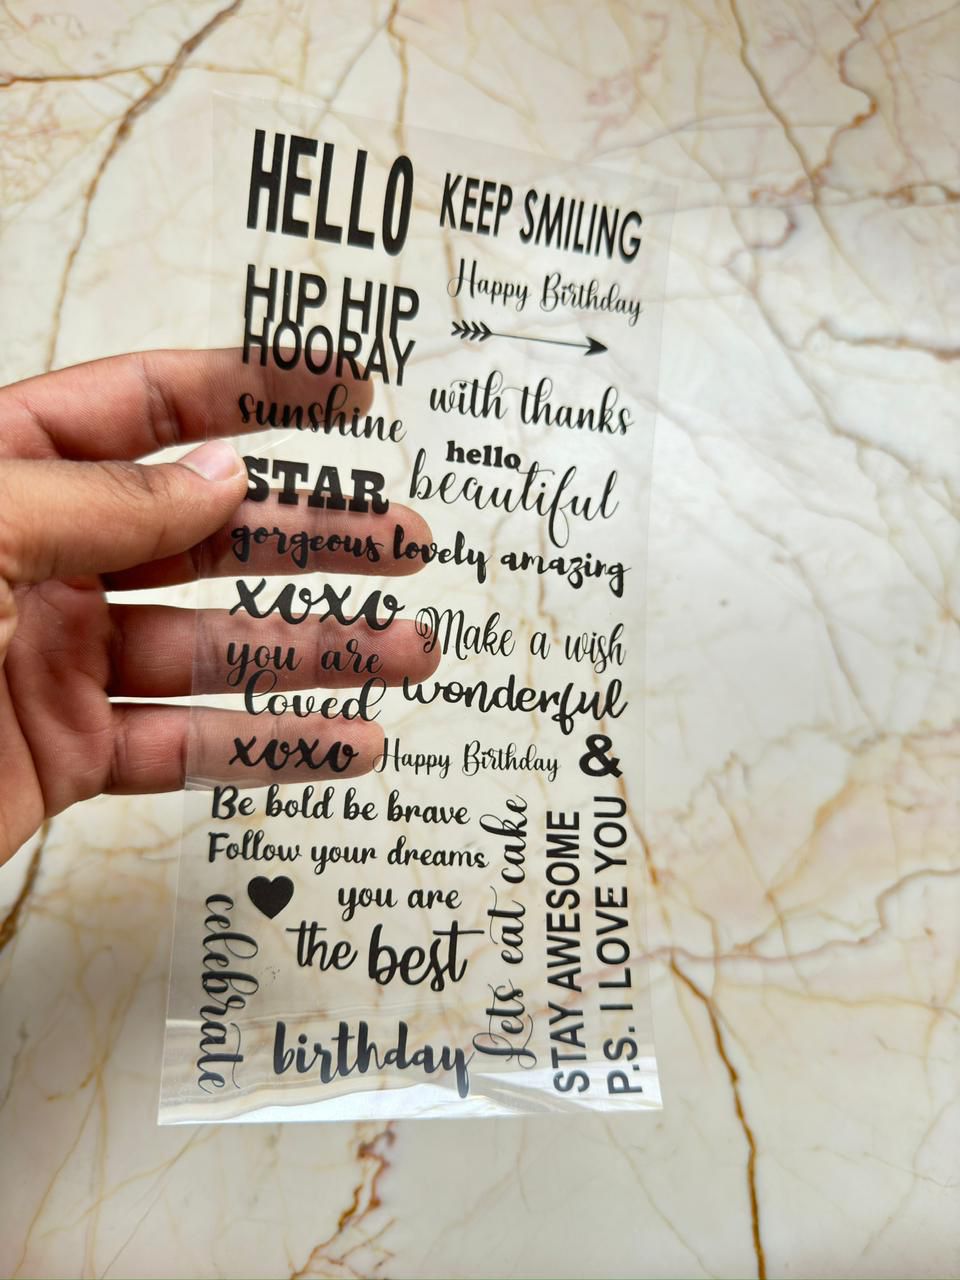 HELLO
KEEP SMILING
HIP HIP
HOORAY
Happy Birthday
sunshine
with thanks
STAR
hello
beautiful
gorgeous lovely amazing
xoxo
Make a wish
you are
loved
wonderful
xoxo
Happy Birthday
&
Be bold be brave
Follow your dreams
you are
the best
celebrate
birthday
Lets eat cake
STAY AWESOME
P.S. I LOVE YOU